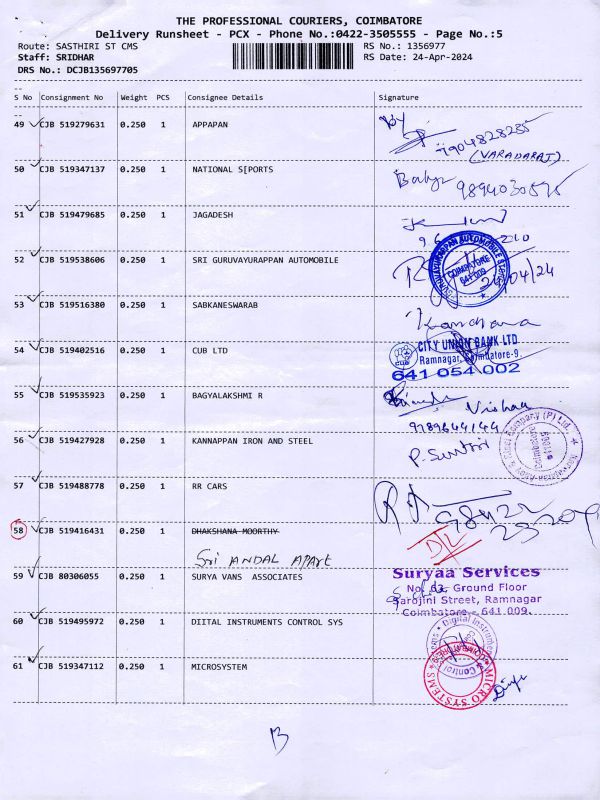 THE PROFESSIONAL COURIERS, COIMBATORE
Delivery Runsheet - PCX - Phone No.:0422-3505555 - Page No.:5
Route: SASTHIRI ST CMS RS No.: 1356977
Staff: SRIDHAR RS Date: 24-Apr-2024
DRS No.: DCJB135697705
S No Consignment No Weight PCS Consignee Details Signature
49 CJB 519279631 0.250 1 APPAPAN
7904828285
(VARADARAJ)
50 CJB 519347137 0.250 1 NATIONAL S[PORTS
51 CJB 519479685 0.250 1 JAGADESH
52 CJB 519538606 0.250 1 SRI GURUVAYURAPPAN AUTOMOBILE
COIMBATORE
641 009
24/04/24
53 CJB 519516380 0.250 1 SABKANESWARAB
54 CJB 519402516 0.250 1 CUB LTD
CITY UNION BANK LTD
Ramnagar, Coimbatore-9.
641 054 002
55 CJB 519535923 0.250 1 BAGYALAKSHMI R
9789644144
56 CJB 519427928 0.250 1 KANNAPPAN IRON AND STEEL
57 CJB 519488778 0.250 1 RR CARS
58 CJB 519416431 0.250 1 DHAKSHANA MOORTHY
D/L
Sri ANDAL APART
59 CJB 80306055 0.250 1 SURYA VANS ASSOCIATES
Suryaa Services
No. 63, Ground Floor
Sarojini Street, Ramnagar
Coimbatore - 641 009.
60 CJB 519495972 0.250 1 DIITAL INSTRUMENTS CONTROL SYS
61 CJB 519347112 0.250 1 MICROSYSTEM
MICRO SYSTEMS
13